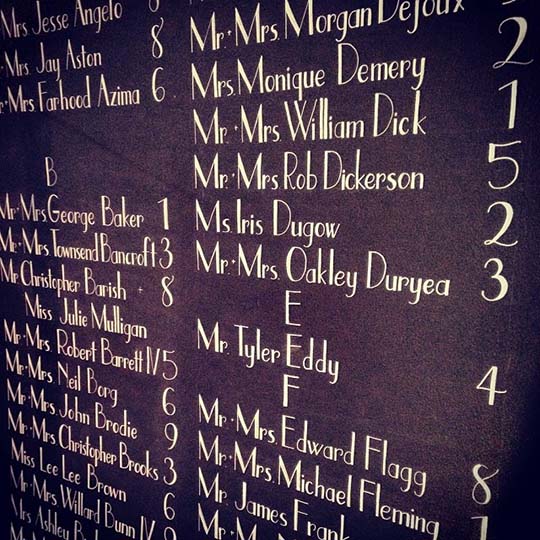 Mrs. Jesse Angelo
Jay Aston 8
Mrs Farhood Azima 6
B
Mr+Mrs. George Baker 1
Mr+Mrs. Townsend Bancroft 3
Mr. Christopher Barish + 8
Miss Julie Mulligan
Mr+Mrs. Robert Barrett IV 5
Mr+Mrs. Neil Borg 6
Mr+Mrs. John Brodie 9
Mr+Mrs Christopher Brooks 3
Miss Lee Lee Brown 6
Mr+Mrs. Willard Bunn IV
Mrs Ashley
Mr+Mrs. Morgan DeJoux
Mrs. Monique Demery 2
Mr+Mrs. William Dick 1
Mr+Mrs Rob Dickerson 5
Ms. Iris Dugow 2
Mr+Mrs. Oakley Duryea 3
E
Mr. Tyler Eddy 4
F
Mr+Mrs. Edward Flagg 8
Mr+Mrs. Michael Fleming
Mr. James